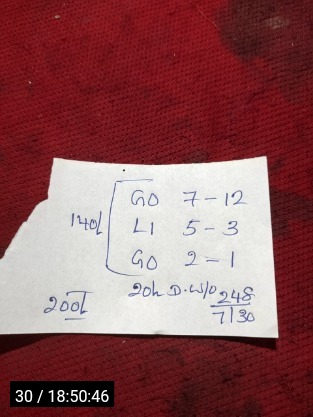 GO 7-12
140/ LI 5-3
GO 2-1
20h D.W/O 248
200/ 7/30
30 / 18:50:46